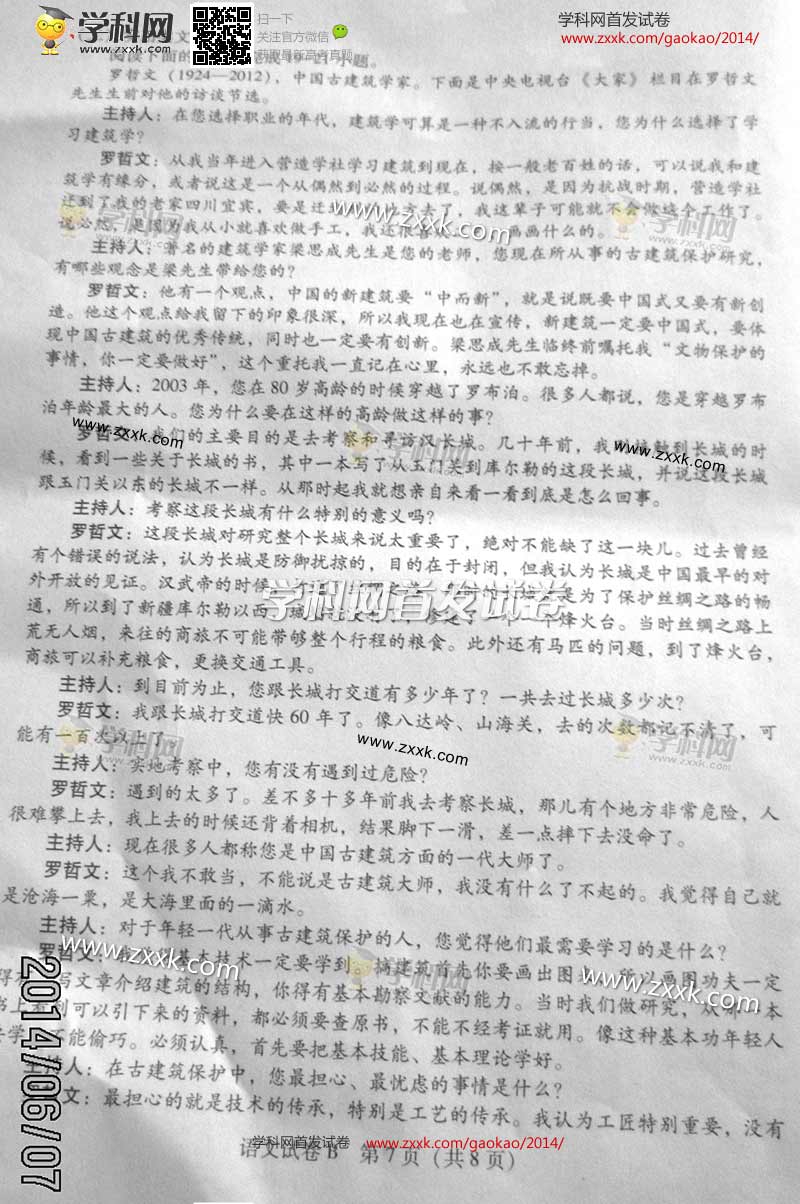 学科网
www.zxxk.com
扫一下
关注官方微信
获取最新高考真题
学科网首发试卷
www.zxxk.com/gaokao/2014/
阅读下面的 成19—21小题。
罗哲文（1924—2012），中国古建筑学家。下面是中央电视台《大家》栏目在罗哲文
先生生前对他的访谈节选。
主持人：在您选择职业的年代，建筑学可算是一种不入流的行当，您为什么选择了学
习建筑学？
罗哲文：从我当年进入营造学社学习建筑到现在，按一般老百姓的话，可以说我和建
筑学有缘分，或者说这是一个从偶然到必然的过程。说偶然，是因为抗战时期，营造学社
迁到了我的老家四川宜宾，要是迁 方去了，我这辈子可能就不会做这个工作了。
说必然，是因为我从小就喜欢做手工，我还很喜 画画什么的。
主持人：著名的建筑学家梁思成先生是您的老师，您现在所从事的古建筑保护研究，
有哪些观念是梁先生带给您的？
罗哲文：他有一个观点，中国的新建筑要“中而新”，就是说既要中国式又要有新创
造。他这个观点给我留下的印象很深，所以我现在也在宣传，新建筑一定要中国式，要体
现中国古建筑的优秀传统，同时也一定要有创新。梁思成先生临终前嘱托我“文物保护的
事情，你一定要做好”，这个重托我一直记在心里，永远也不敢忘掉。
主持人：2003 年，您在 80 岁高龄的时候穿越了罗布泊。很多人都说，您是穿越罗布
泊年龄最大的人。您为什么要在这样的高龄做这样的事？
罗哲文：我们的主要目的是去考察和寻访汉长城。几十年前，我 接触到长城的时
候，看到一些关于长城的书，其中一本写了从玉门关到库尔勒的这段长城，并说这段长城
跟玉门关以东的长城不一样。从那时起我就想亲自来看一看到底是怎么回事。
主持人：考察这段长城有什么特别的意义吗？
罗哲文：这段长城对研究整个长城来说太重要了，绝对不能缺了这一块儿。过去曾经
有个错误的说法，认为长城是防御扰掠的，目的在于封闭，但我认为长城是中国最早的对
外开放的见证。汉武帝的时候 是为了保护丝绸之路的畅
通，所以到了新疆库尔勒以西 城 个烽火台。当时丝绸之路上
荒无人烟，来往的商旅不可能带够整个行程的粮食。此外还有马匹的问题，到了烽火台，
商旅可以补充粮食，更换交通工具。
学科网首发试卷
主持人：到目前为止，您跟长城打交道有多少年了？一共去过长城多少次？
罗哲文：我跟长城打交道快 60 年了。像八达岭、山海关，去的次数都记不清了，可
能有一百次以上了
主持人：实地考察中，您有没有遇到过危险？
罗哲文：遇到的太多了。差不多十多年前我去考察长城，那儿有个地方非常危险，人
很难攀上去，我上去的时候还背着相机，结果脚下一滑，差一点摔下去没命了。
主持人：现在很多人都称您是中国古建筑方面的一代大师了。
罗哲文：这个我不敢当，不能说是古建筑大师，我没有什么了不起的。我觉得自己就
是沧海一粟，是大海里面的一滴水。
主持人：对于年轻一代从事古建筑保护的人，您觉得他们最需要学习的是什么？
罗哲文 基本技术一定要学到。搞建筑首先你要画出图 所以画图功夫一定
得 写文章介绍建筑的结构，你得有基本勘察文献的能力。当时我们做研究，从 本
书上看到可以引下来的资料，都必须要查原书，不能不经考证就用。像这种基本功年轻人
去学 不能偷巧。必须认真，首先要把基本技能、基本理论学好。
主持人：在古建筑保护中，您最担心、最忧虑的事情是什么？
文：最担心的就是技术的传承，特别是工艺的传承。我认为工匠特别重要，没有
语文试卷B 第 7 页（共 8 页）
学科网首发试卷 www.zxxk.com/gaokao/2014/
2014/06/07